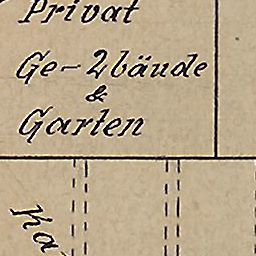 Privat
Ge-2bäude
&
Garten
Ka